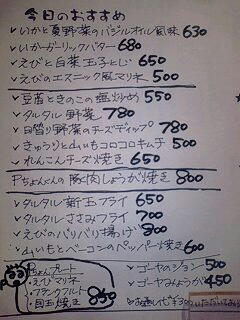 今日のおすすめ
✓いかと夏野菜のバジルオイル風味 630
✓いかガーリックバター 680
✓えびと白菜玉子とじ 650
✓えびのエスニック風マリネ 500
✓豆腐ときのこの塩炒め 550
✓タルタル野菜 780
✓日替り野菜のチーズディップ 780
✓きゅうりと山いもコロコロキムチ 500
✓れんこんチーズ焼き 650
Pちょんくんの豚肉しょうが焼き 800
✓タルタル新玉フライ 650
✓タルタルささみフライ 700
✓えびのパリパリ揚げ 800
✓山いもとベーコンのペッパー焼き 600
Pちょんプレート
・えびマリネ
・フランクフルト
・目玉焼き 850
✓ゴーヤのジョン 500
✓ゴーヤみょうが 450
✓お通し代¥300いただいており